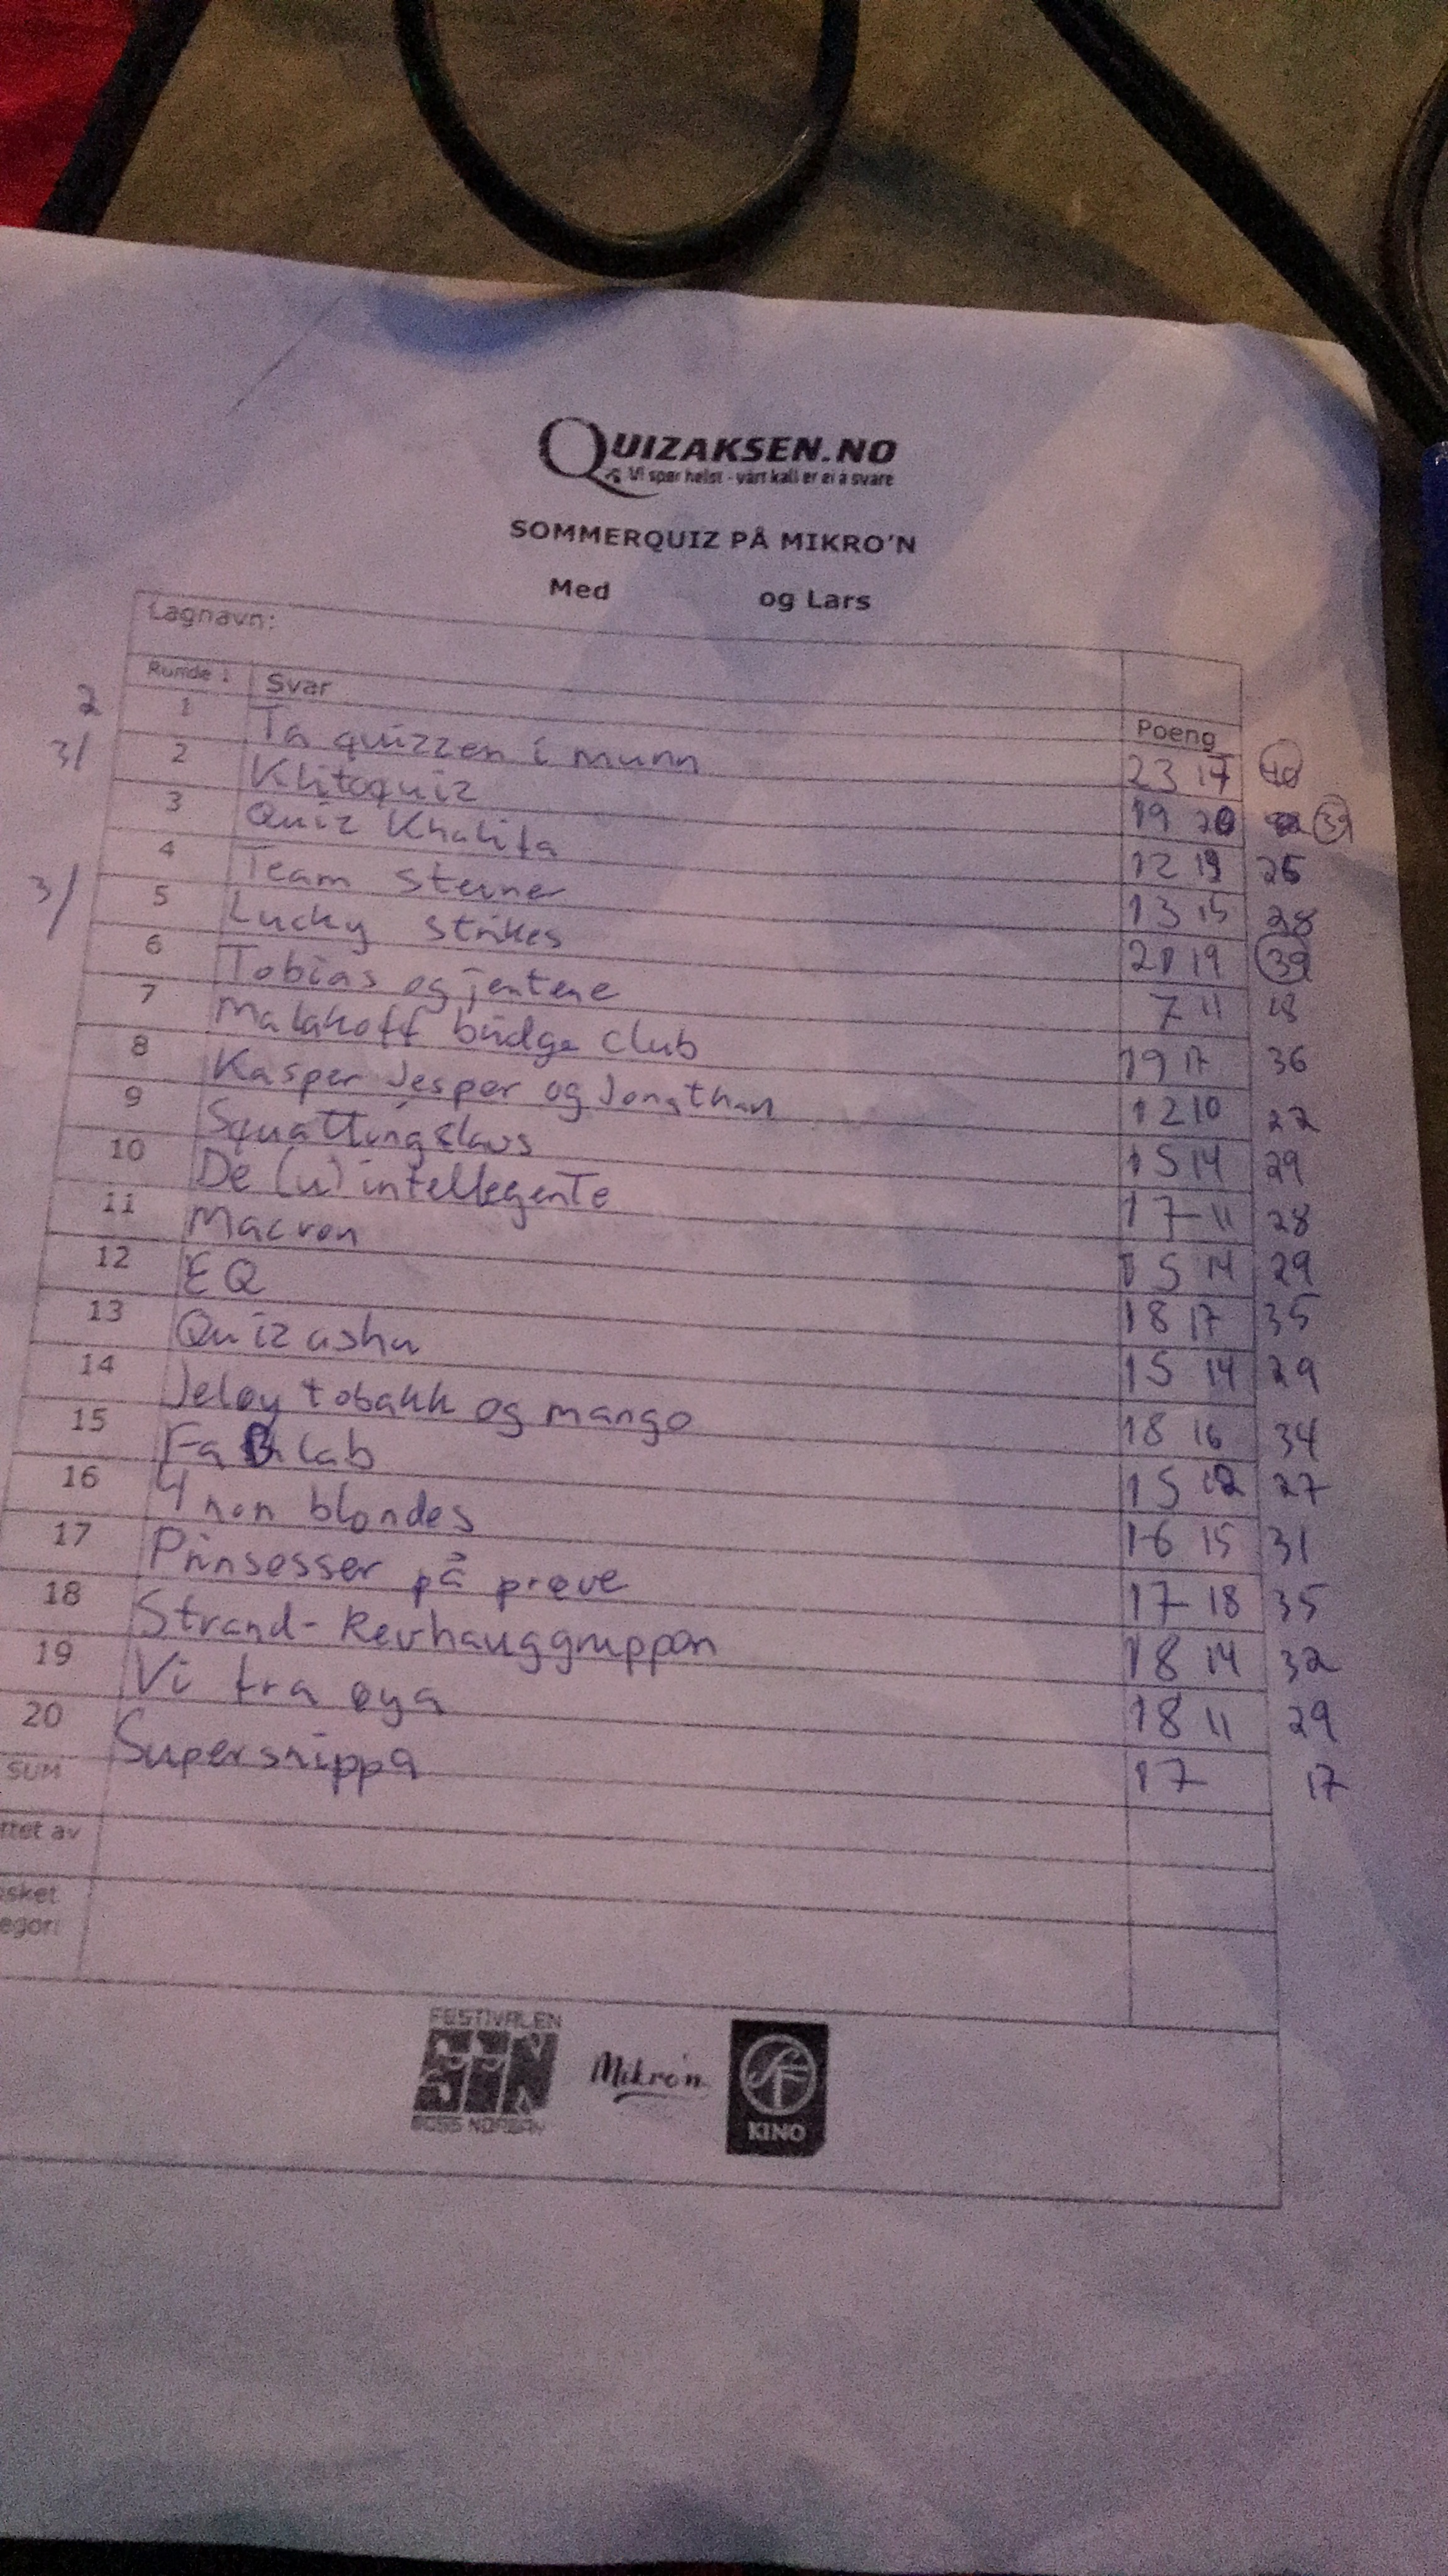 QUIZAKSEN.NO
Vi spør helst - vårt kall er ei å svare
SOMMERQUIZ PÅ MIKRO'N
Med og Lars
Lagnavn:
Runde ↓ Svar Poeng
2 1 Ta quizzen i munn 23 17 40
3/ 2 Klitoquiz 19 20 39
3 Quiz Khalifa 12 26
4 Team Steiner 13 15 28
3/ 5 Lucky strikes 20 19 39
6 Tobias og jentene 7 11 18
7 Malakoff bridge club 19 17 36
8 Kasper Jesper og Jonathan 12 10 22
9 Squatting slavs 15 14 29
10 De (u)intellegente 17 11 28
11 Macron 15 14 29
12 EQ 18 17 35
13 Quizasha 15 14 29
14 Jeløy tobakk og mango 18 16 34
15 FaBlab 15 12 27
16 4 non blondes 16 15 31
17 Prinsesser på prøve 17 18 35
18 Strand-Revhauggruppen 18 14 32
19 Vi fra øya 18 11 29
20 Supersnippa 17 17
SUM
ttet av
sket
egori
FESTIVALEN
SIN
Mikro'n
KINO